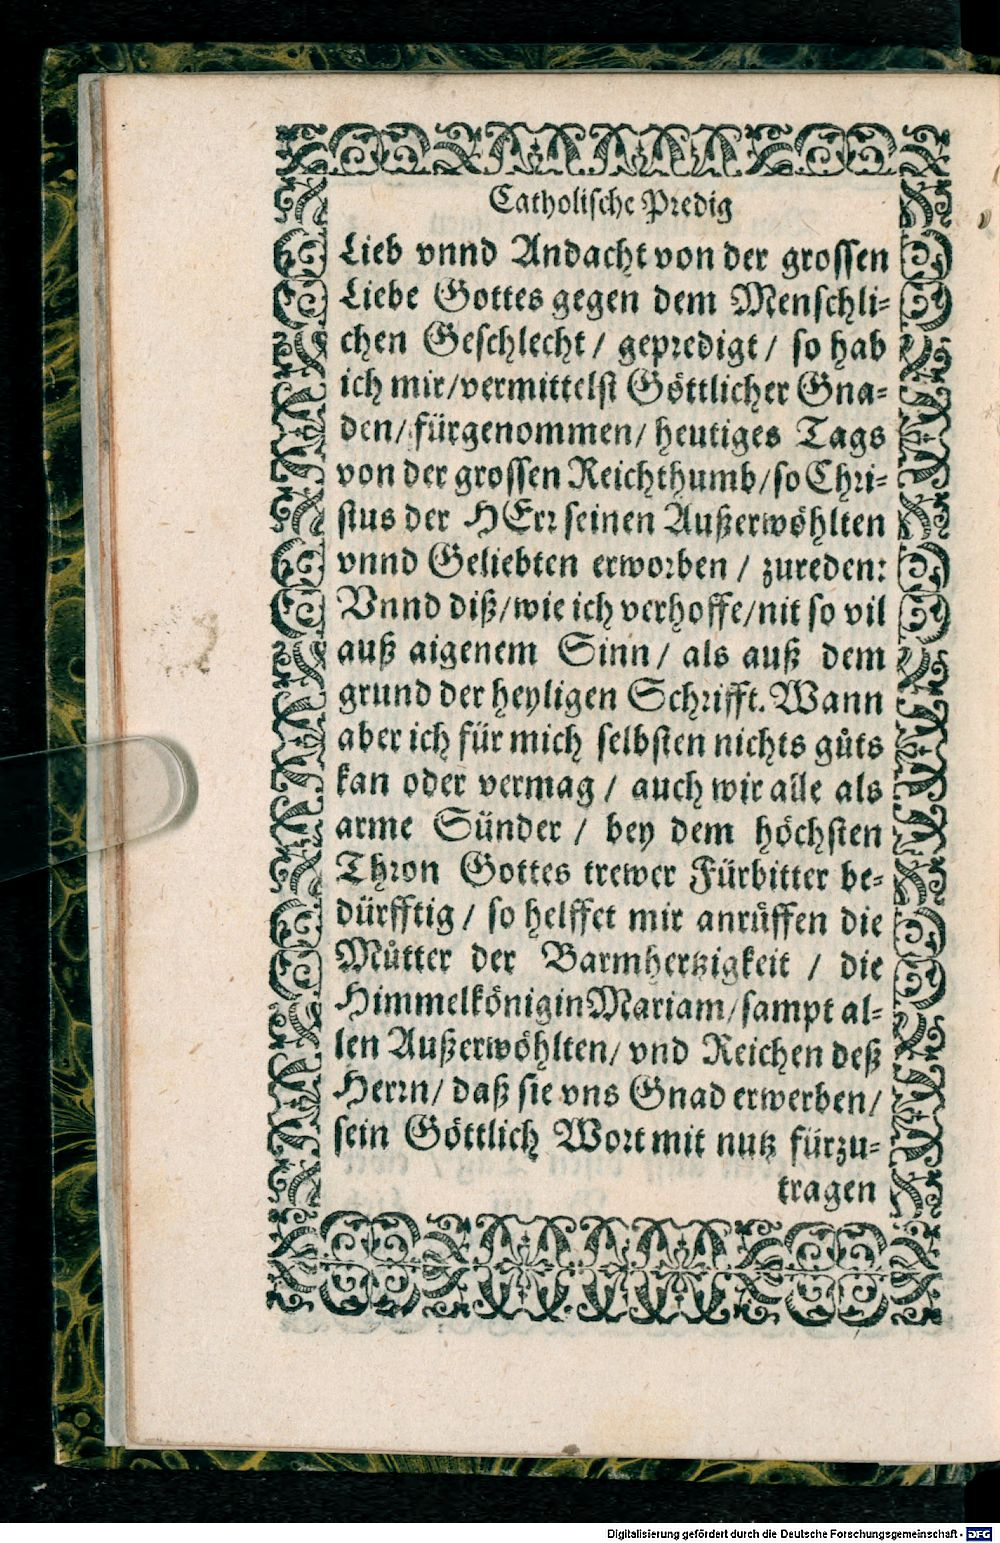 Catholische Predig
Lieb vnnd Andacht von der grossen
Liebe Gottes gegen dem Menschli-
chen Geschlecht / gepredigt / so hab
ich mir/vermittelst Göttlicher Gna-
den/ fürgenommen/ heutiges Tags
von der grossen Reichthumb/so Chri-
stus der HErr seinen Außerwöhlten
vnnd Geliebten erworben / zureden:
Vnnd diß/wie ich verhoffe/nit so vil
auß aigenem Sinn / als auß dem
grund der heyligen Schrifft. Wann
aber ich für mich selbsten nichts gůts
kan oder vermag / auch wir alle als
arme Sünder / bey dem höchsten
Thron Gottes trewer Fürbitter be-
dürfftig / so helffet mir anrůffen die
Můtter der Barmhertzigkeit / die
Himmelkönigin Mariam/sampt al-
len Außerwöhlten/ vnd Reichen deß
Herrn/ daß sie vns Gnad erwerben/
sein Göttlich Wort mit nutz fürzu-
tragen
Digitalisierung gefördert durch die Deutsche Forschungsgemeinschaft - DFG